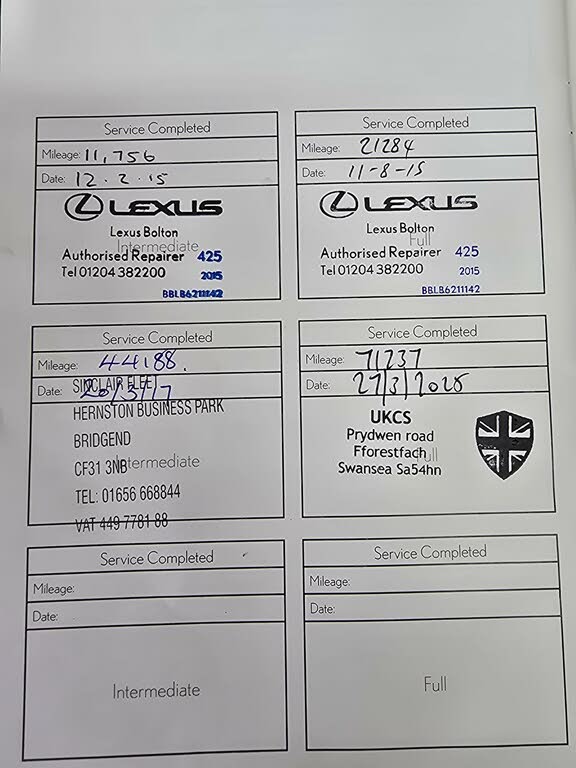 Service Completed
Mileage: 11,756
Date: 12.2.15
LEXUS
Lexus Bolton
Intermediate
Authorised Repairer 425
Tel 01204 382200 2015
BBLB6211142
Service Completed
Mileage: 21284
Date: 11-8-15
LEXUS
Lexus Bolton
Full
Authorised Repairer 425
Tel 01204 382200 2015
BBLB6211142
Service Completed
Mileage: 44188.
Date: 20/3/17
SINCLAIR FLEET
HERNSTON BUSINESS PARK
BRIDGEND
CF31 3NB Intermediate
TEL: 01656 668844
VAT 449 7781 88
Service Completed
Mileage: 71237
Date: 27/3/2025
UKCS
Prydwen road
Fforestfach
Full
Swansea Sa54hn
Service Completed
Mileage:
Date:
Intermediate
Service Completed
Mileage:
Date:
Full